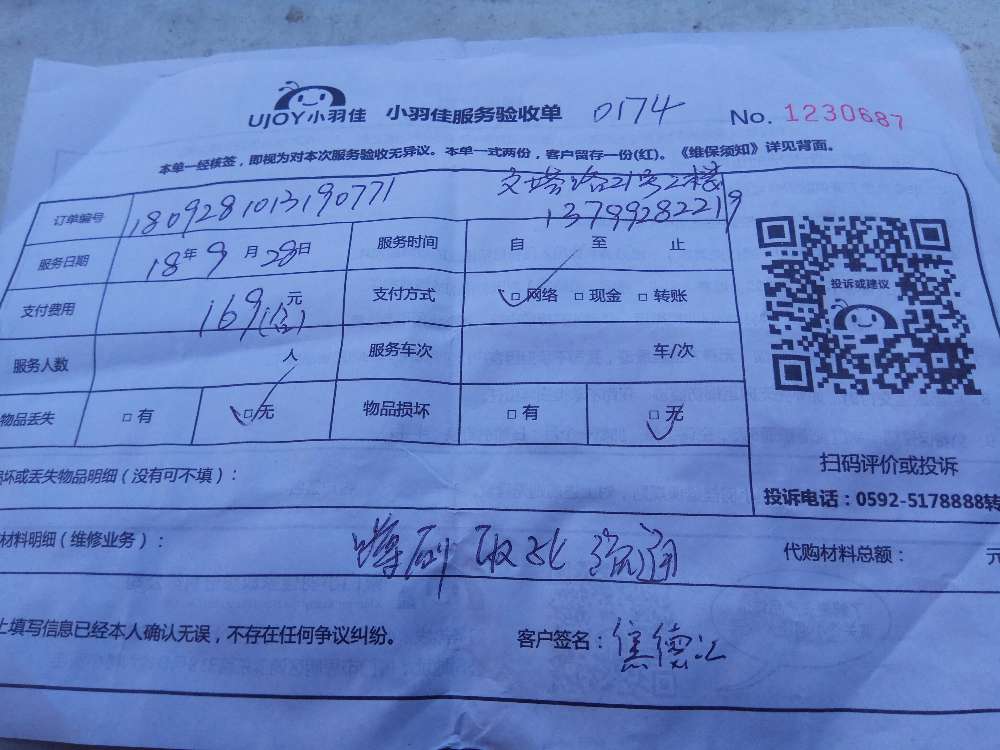 UJOY小羽佳 小羽佳服务验收单 0174 No. 1230687
本单一经核签，即视为对本次服务验收无异议。本单一式两份，客户留存一份(红)。《维保须知》详见背面。
订单编号 1809281013190771 文塔路21号2楼
13799282219
服务日期 18年9月28日 服务时间 自 至 止
支付费用 169 元 支付方式 □网络 □现金 □转账
服务人数 人 服务车次 车/次
物品丢失 □有 □无 物品损坏 □有 □无
投诉或建议
扫码评价或投诉
投诉电话：0592-5178888转
坏或丢失物品明细（没有可不填）：
材料明细（维修业务）： 蹲厕 疏通 代购材料总额： 元
上填写信息已经本人确认无误，不存在任何争议纠纷。 客户签名：